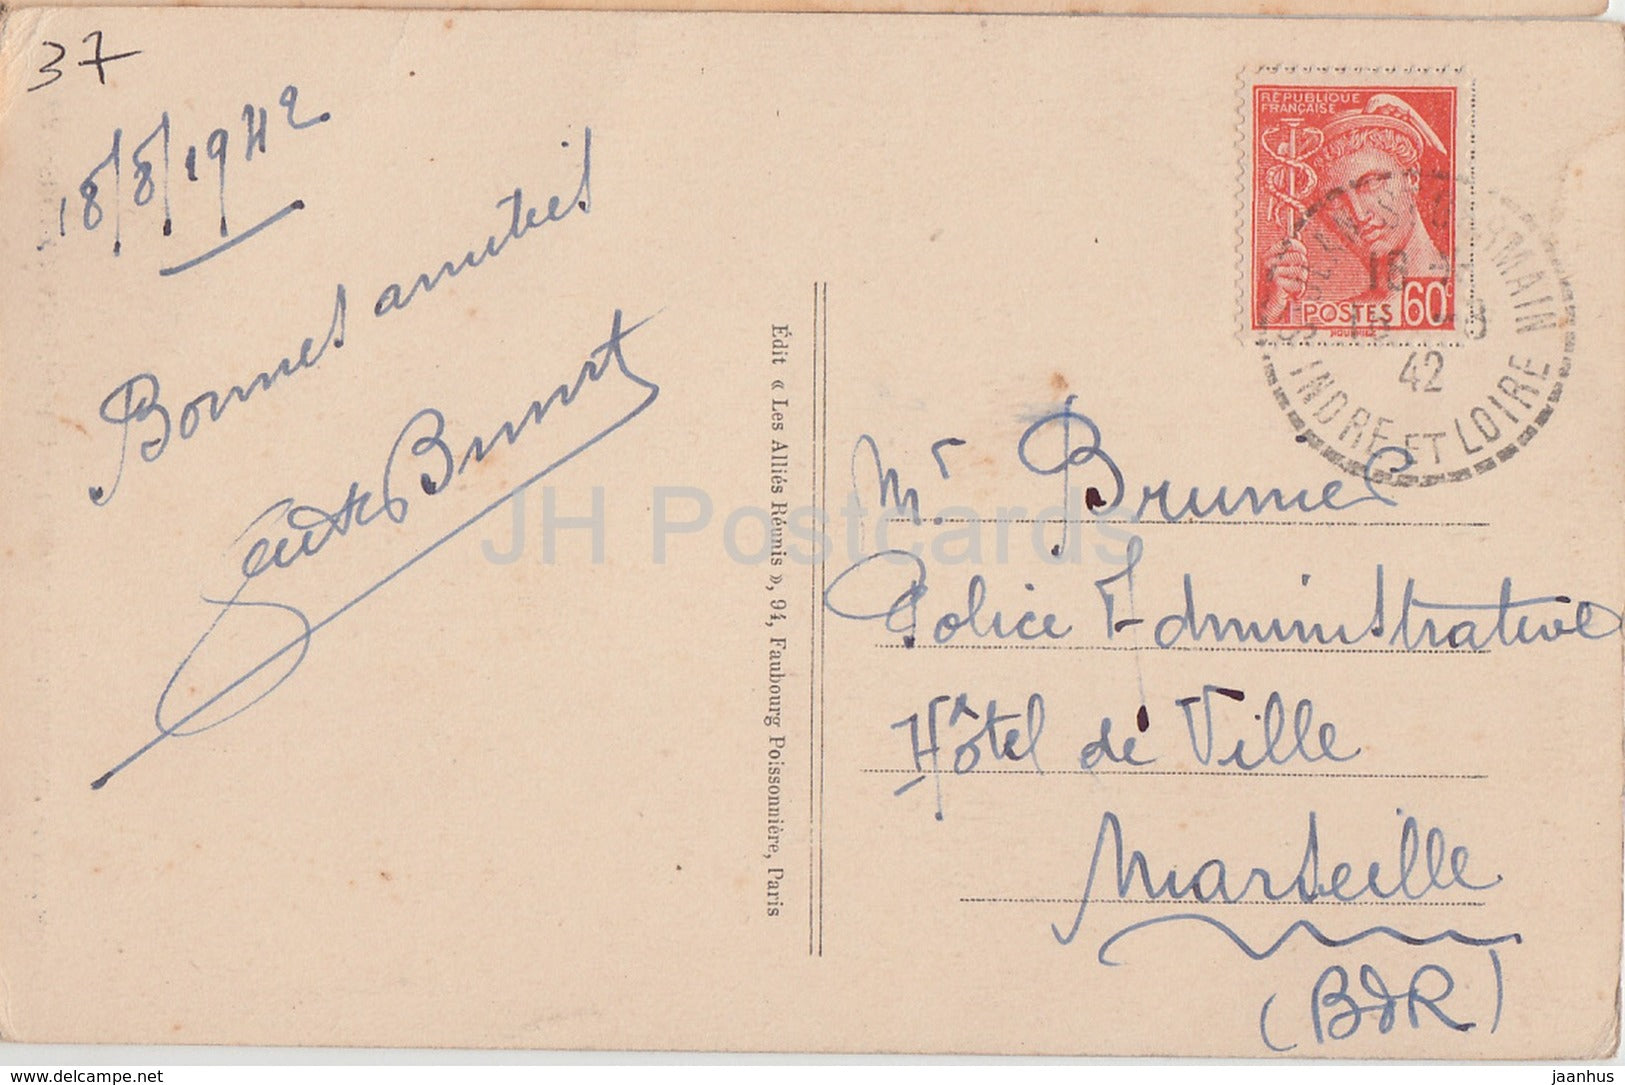 37
18/8/1942
Bonnes amitiés
Édit « Les Alliés Réunis », 94, Faubourg Poissonnière, Paris
RÉPUBLIQUE
FRANÇAISE
POSTES 60c
ST GERMAIN
18
42
INDRE ET LOIRE
Mr. Brunet
Police Administrative
Hôtel de Ville
Marseille
(BdR)
JH Postcards
delcampe.net
jaanhus